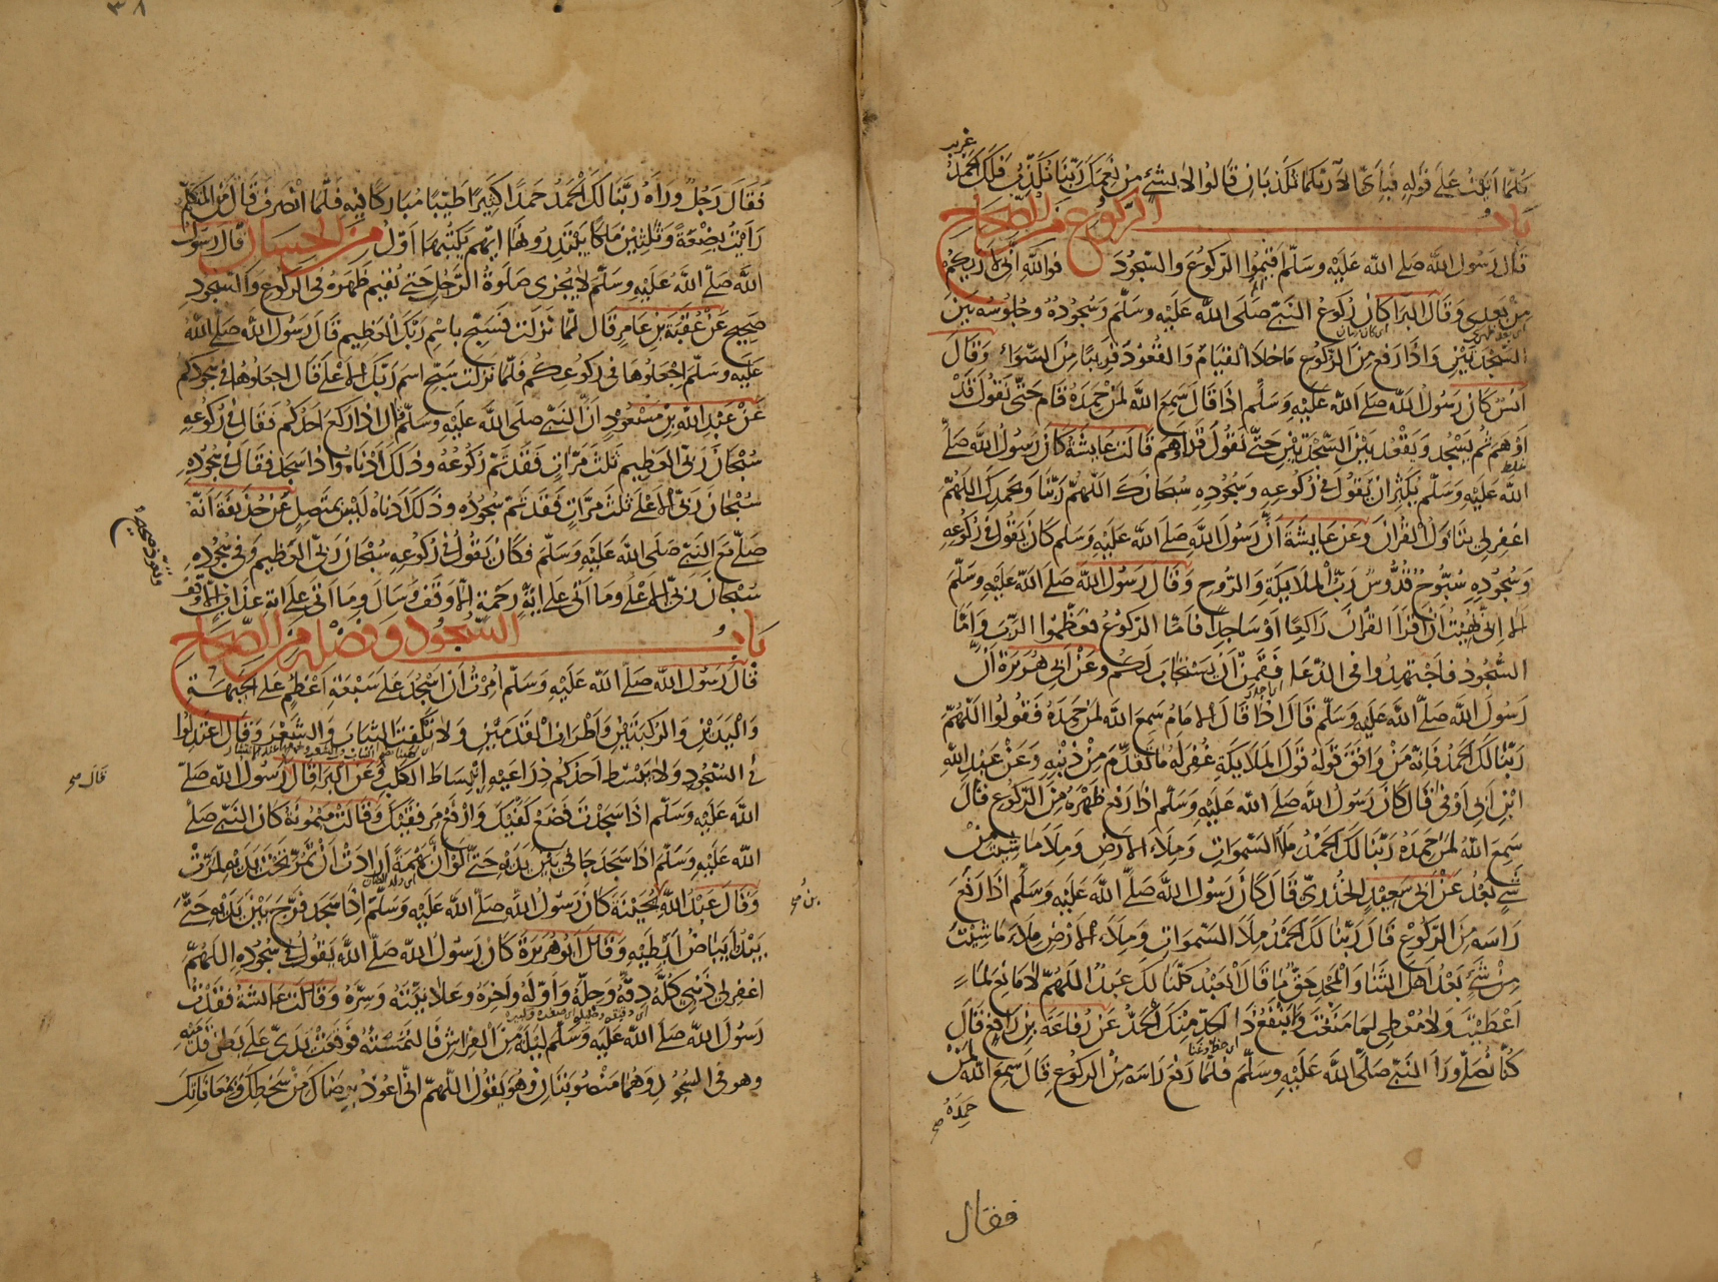 غريب
كلما اتيت على قوله فباي الاء ربكما تكذبان قالوا لا بشئ من نعمك ربنا نكذب فلك الحمد
باب الركوع من الصحاح
قال رسول الله صلى الله عليه وسلم اقيموا الركوع والسجود فوالله اني لاريكم
من بعدي وقال البرا كان ركوع النبي صلى الله عليه وسلم وسجوده وجلوسه بين
السجدتين واذا رفع من الركوع ما خلا القيام والقعود قريبا من السواء وقال
انس كان رسول الله صلى الله عليه وسلم اذا قال سمع الله لمن حمده قام حتى نقول قد
اوهم ثم يسجد ويقعد بين السجدتين حتى نقول قد اوهم قالت عايشة كان رسول الله صلى
الله عليه وسلم يكثر ان يقول في ركوعه وسجوده سبحانك اللهم ربنا وبحمدك اللهم
اغفر لي يتاول القران وعن عايشة ان رسول الله صلى الله عليه وسلم كان يقول في ركوعه
وسجوده سبوح قدوس رب الملايكة والروح وقال رسول الله صلى الله عليه وسلم
الا اني نهيت ان اقرا القران راكعا او ساجدا فاما الركوع فعظموا الرب واما
السجود فاجتهدوا في الدعا فقمن ان يستجاب لكم وعن ابي هريرة ان
رسول الله صلى الله عليه وسلم قال اذا قال الامام سمع الله لمن حمده فقولوا اللهم
ربنا لك الحمد فانه من وافق قوله قول الملايكة غفر له ما تقدم من ذنبه وعن عبد الله
ابن ابي اوفى قال كان رسول الله صلى الله عليه وسلم اذا رفع ظهره من الركوع قال
سمع الله لمن حمده ربنا لك الحمد ملا السموات وملاء الارض وملا ما شيت من
شئ بعد عن ابي سعيد الخدري قال كان رسول الله صلى الله عليه وسلم اذا رفع
راسه من الركوع قال ربنا لك الحمد ملا السموات وملاء الارض ملاء ما شيت
من شئ بعد اهل الثنا والمجد حق ما قال العبد كلنا لك عبد اللهم لا مانع لما
اعطيت ولا معطي لما منعت ولا ينفع ذا الجد منك الجد عن رفاعة بن رافع قال
اي حظ وغنا
كنا نصلي ورا النبي صلى الله عليه وسلم فلما رفع راسه من الركوع قال سمع الله لمن
حمده صح
فقال
٣٨
فقال رجل وراه ربنا لك الحمد حمدا كثيرا طيبا مباركا فيه فلما انصرف قال من المتكلم
رايت بضعة وثلثين ملكا يبتدرونها ايهم يكتبها اول من الحسان قال رسول
الله صلى الله عليه وسلم لا يجزى صلوة الرجل حتى يقيم ظهره في الركوع والسجود
صحيح عن عقبة بن عامر قال لما نزلت فسبح باسم ربك العظيم قال رسول الله صلى الله
عليه وسلم اجعلوها في ركوعكم فلما نزلت سبح اسم ربك الاعلى قال اجعلوها في سجودكم
عن عبد الله بن مسعود ان النبي صلى الله عليه وسلم قال اذا ركع احدكم فقال في ركوعه
سبحان ربي العظيم ثلث مرات فقد تم ركوعه وذلك ادناه واذا سجد فقال في سجوده
سبحان ربي الاعلى ثلث مرات فقد تم سجوده وذلك ادناه ليس بمتصل عن حذيفة انه
صلى مع النبي صلى الله عليه وسلم فكان يقول في ركوعه سبحان ربي العظيم وفي سجوده
سبحان ربي الاعلى وما اتى على اية رحمة الا وقف وسال وما اتى على اية عذاب الا وقف
وتعوذ صحيح
باب السجود وفضله من الصحاح
قال رسول الله صلى الله عليه وسلم امرت ان اسجد على سبعة اعظم على الجبهة
واليدين والركبتين واطراف القدمين ولا نكفت الثياب والشعر وقال اعتدلوا
في السجود ولا يبسط احدكم ذراعيه انبساط الكلب وعن البرا قال رسول الله صلى
قال صح
الله عليه وسلم اذا سجدت فضع كفيك وارفع مرفقيك وقالت ميمونة كان النبي صلى
الله عليه وسلم اذا سجد جافى بين يديه حتى لو ان بهمة ارادت ان تمر تحت يديه لمرت
وقال عبد الله بحينة كان رسول الله صلى الله عليه وسلم اذا سجد فرج بين يديه حتى
بن صح
يبدو بياض ابطيه وقال ابو هريرة كان رسول الله صلى الله يقول في سجوده اللهم
اغفر لي ذنبي كله دقه وجله واوله واخره وعلانيته وسره وقالت عائشة فقدت
رسول الله صلى الله عليه وسلم ليلة من الفراش فالتمسته فوقعت يدي على بطن قدميه
وهو في السجود وهما منصوبتان وهو يقول اللهم اني اعوذ برضاك من سخطك وبمعافاتك